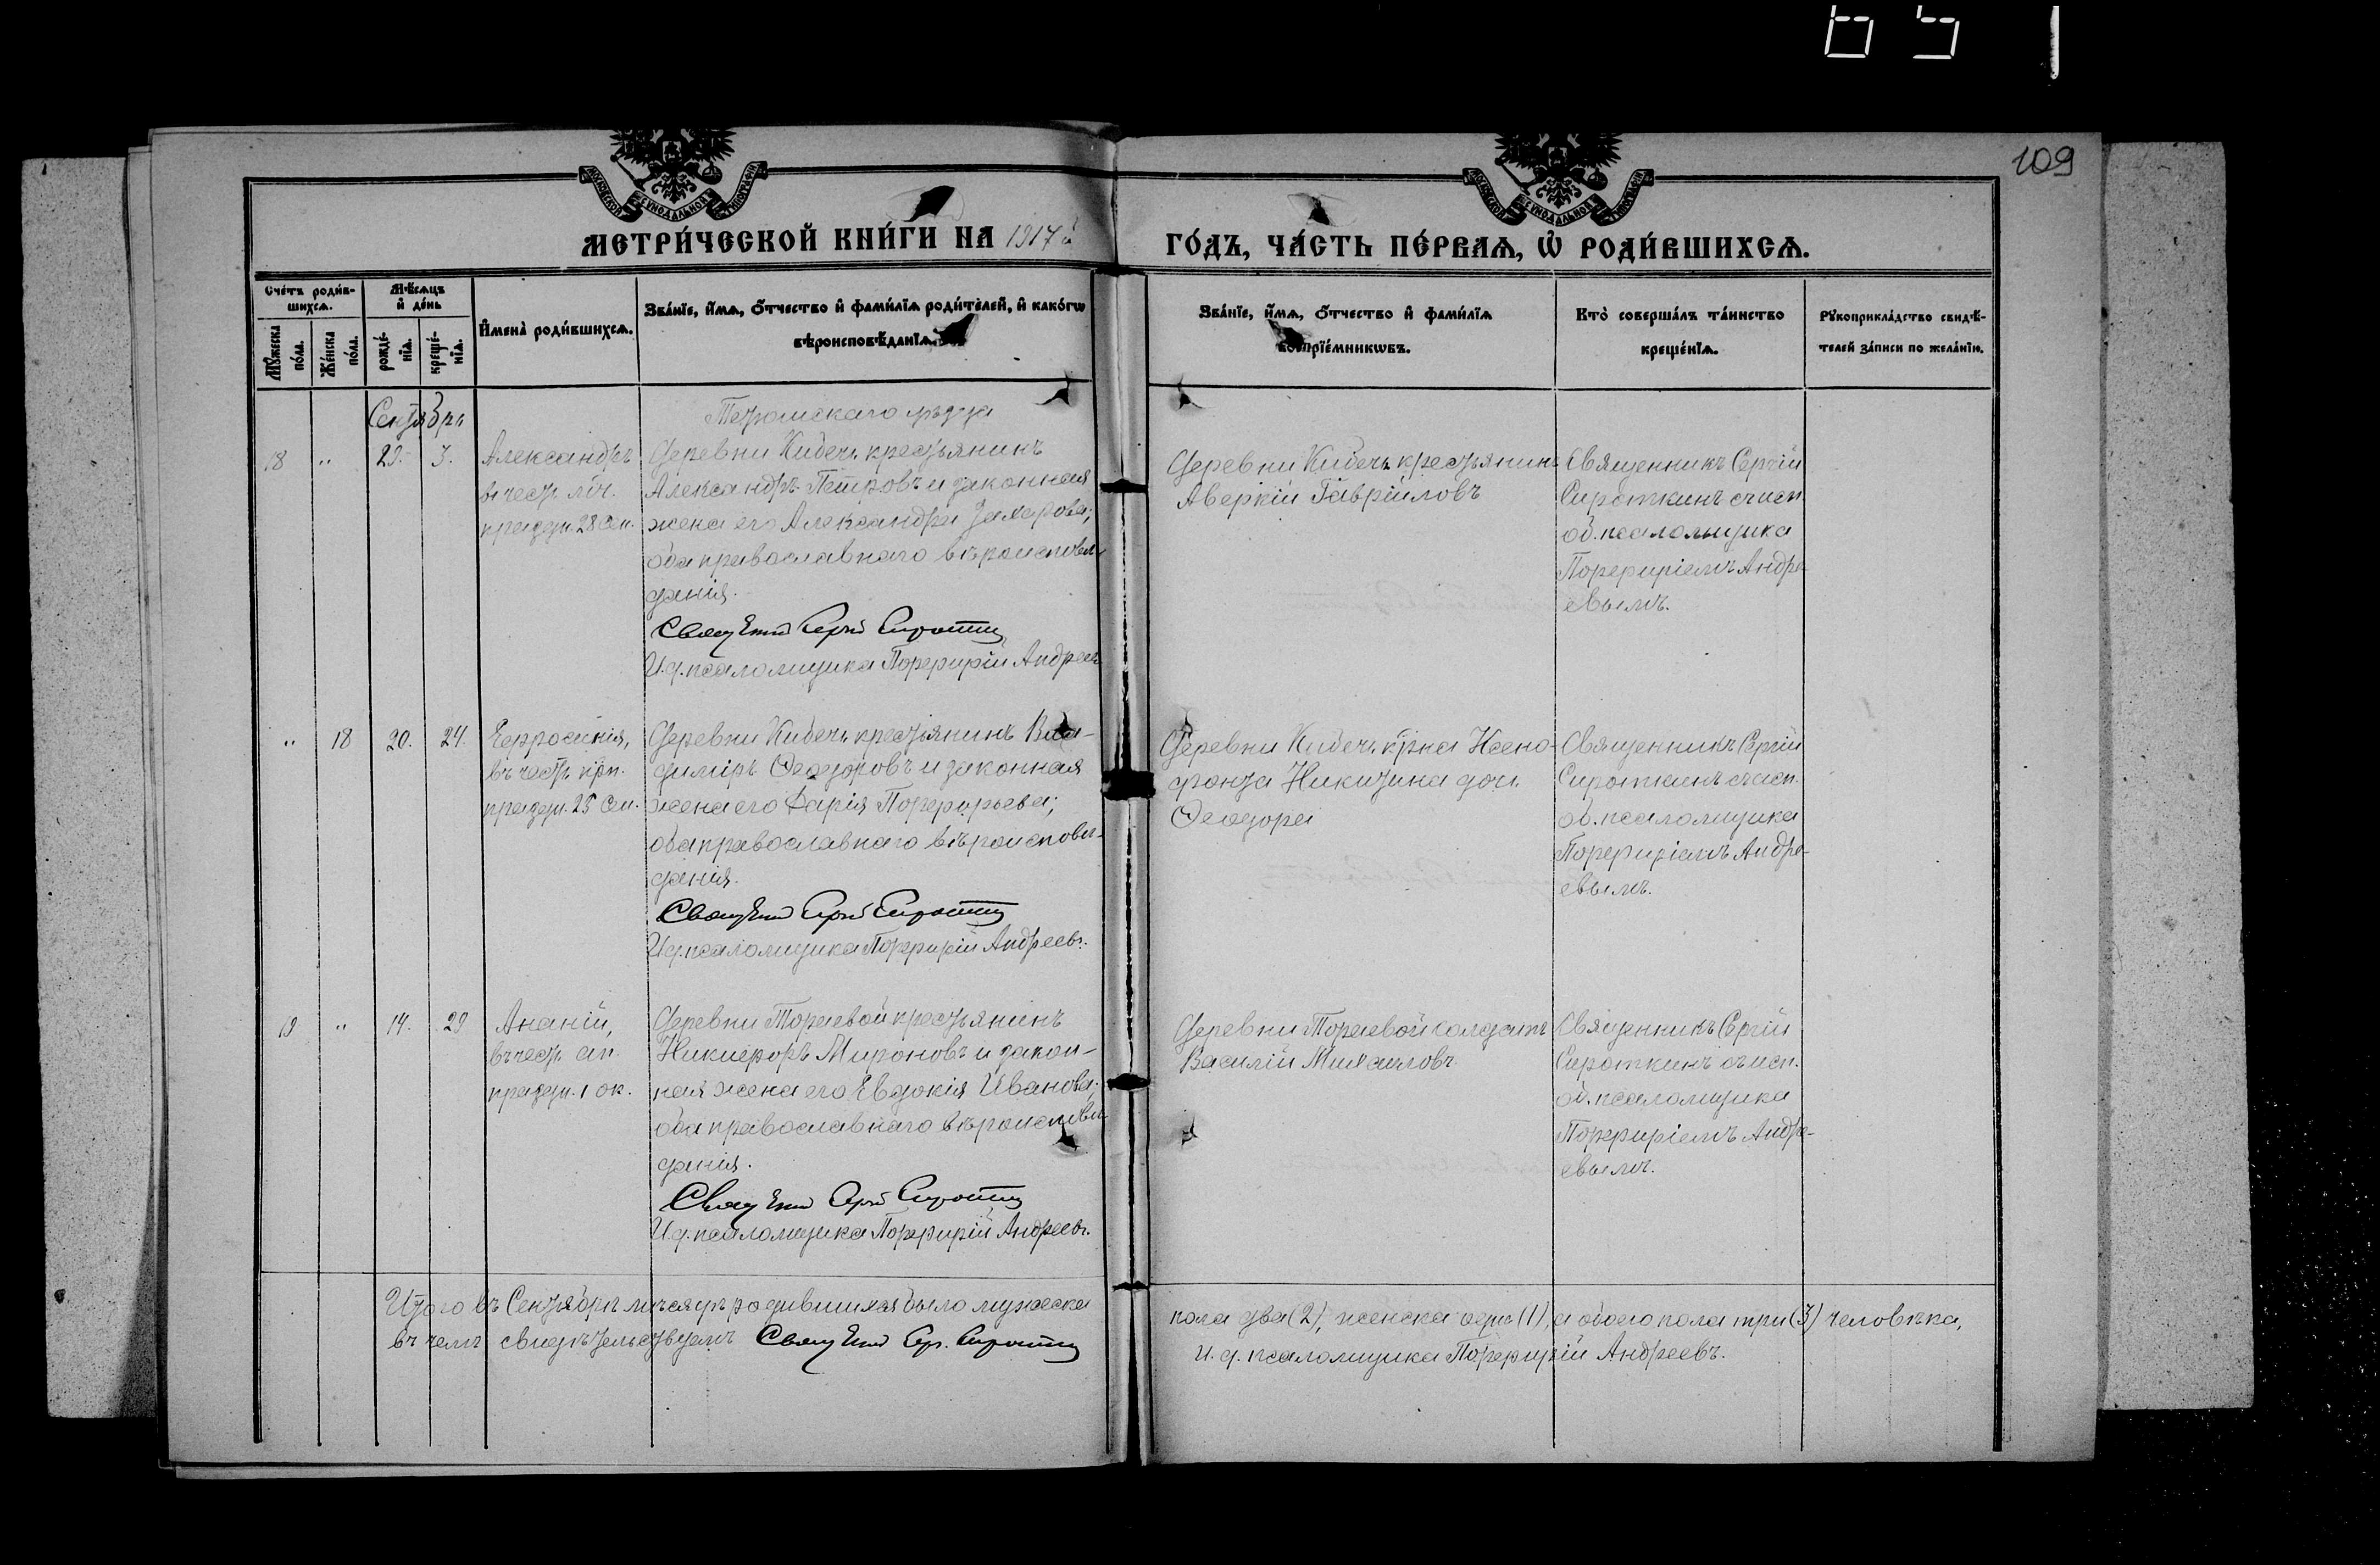 109
МЕТРИ́ЧЕСКОЙ КНИ́ГИ НА 1917 й ГО́ДЪ, ЧА́СТЬ ПЕ́РВАѦ, Ѡ҆ РОДИ́ВШИХСѦ.
Сче́тъ роди́вшихсѧ.
Мꙋ́жеска по́ла.
Же́нска по́ла.
Мѣ́сѧцъ и҆ де́нь
рожде́нїѧ.
креще́нїѧ.
И҆мена̀ роди́вшихсѧ.
Зва́нїе, и҆́мѧ, ѻ҆́тчество и҆ фами́лїѧ роди́телей, и҆ како́гѡ
вѣроисповѣ́данїѧ.
Зва́нїе, и҆́мѧ, ѻ҆́тчество и҆ фами́лїѧ
воспрїе́мникѡвъ.
Кто̀ соверша́лъ та́инство
креще́нїѧ.
Рꙋкоприкла́дство свидѣ́-
телей за́писи по жела́нїю.
Сентября
18 " 29. 3.
Александръ
въ честь
празди. 28 Сен.
Деревни Кибечь крестьянинъ
Александръ Петровъ и законная
жена его Александра Захарова;
оба православнаго вѣроисповѣ-
данія.
Священникъ Сергій Сироткинъ
И.д. псаломщика Порфирій Андреевъ
Деревни Кибечь крестьянинъ
Аверкій Гаврійловъ
Священникъ Сергій
Сироткинъ съ исп.
об. псаломщика
Порфиріемъ Андре-
евымъ.
" 18 20. 24.
Евфросинія,
въ честь прп.
празди. 25 Сен.
Деревни Кибечь крестьянинъ Вла-
димiръ Ѳеодоровъ и законная
жена его Дарія Порфирьева;
оба православнаго вѣроисповѣ-
данія.
Священникъ Сергій Сироткинъ
И.д. псаломщика Порфирій Андреевъ.
Деревни Кибечь кр-на Ксено-
фонта Никитина дочь
Ѳеодора
Священникъ Сергій
Сироткинъ съ исп.
об. псаломщика
Порфиріемъ Андре-
евымъ.
19 " 14. 29
Ананій,
въ честь ап.
празди. 1 ок.
Деревни Тораевой крестьянинъ
Никифоръ Мироновъ и закон-
ная жена его Евдокія Иванова;
оба православнаго вѣроисповѣ-
данія.
Священникъ Сергій Сироткинъ
И.д. псаломщика Порфирій Андреевъ.
Деревни Тораевой солдатъ
Василій Михаиловъ
Священникъ Сергій
Сироткинъ съ исп.
об. псаломщика
Порфиріемъ Андре-
евымъ.
Итого въ Сентябрѣ мѣсяцѣ родившихся было мужеска пола два (2), женска одна (1), а обоего пола три (3) человѣка,
въ чемъ свидѣтельствуемъ Священникъ Сер. Сироткинъ и.д. псаломщика Порфирій Андреевъ.